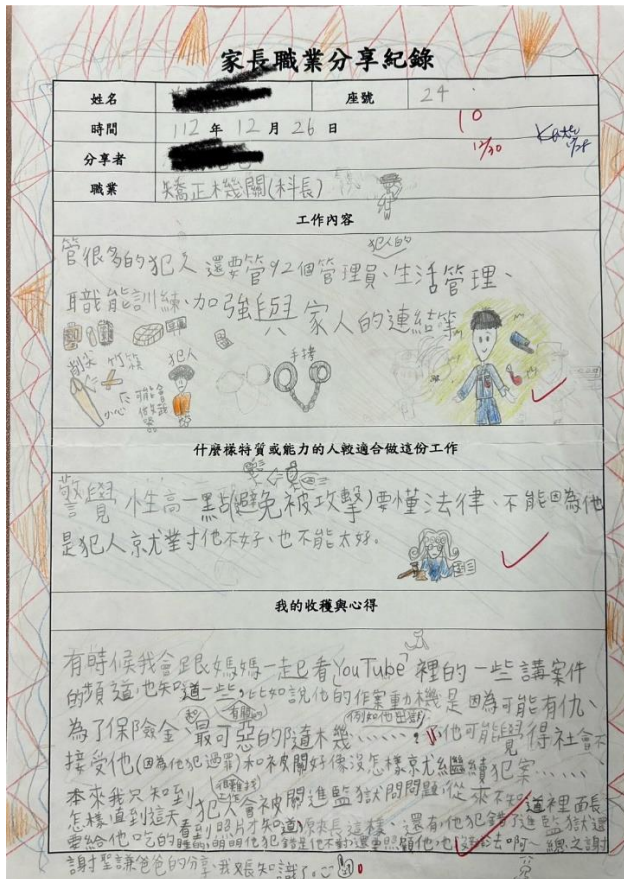 家長職業分享紀錄
姓名 座號 24
時間 112 年 12 月 26 日
10
12/30
分享者
職業 矯正機關(科長)
工作內容
犯人的
管很多的犯人、還要管92個管理員、生活管理、
職能訓練、加強與家人的連結等
削尖 竹筷 犯人 手拷
小心
什麼樣特質或能力的人較適合做這份工作
警覺性高一點(避免被攻擊)要懂法律、不能因為他
是犯人就對他不好、也不能太好。
我的收穫與心得
有時候我會跟媽媽一起看「YouTube」裡的一些講案件
的頻道,也知道一些,比如說他的作案動機是因為可能有仇、
為了保險金、最可惡的隨機……他可能覺得社會不
接受他(因為他犯過罪)和被關好像沒怎樣就繼續犯案……
本來我只知到犯人會被關進監獄問問題,從來不知道裡面長
怎樣直到這天看到照片才知道原來長這樣、還有他犯錯了進監獄還
要給他吃的睡的,明明他犯錯是他不對還要照顧他,也 沒辦法啊~總之謝
謝聖謙爸爸的分享,我長知識了。